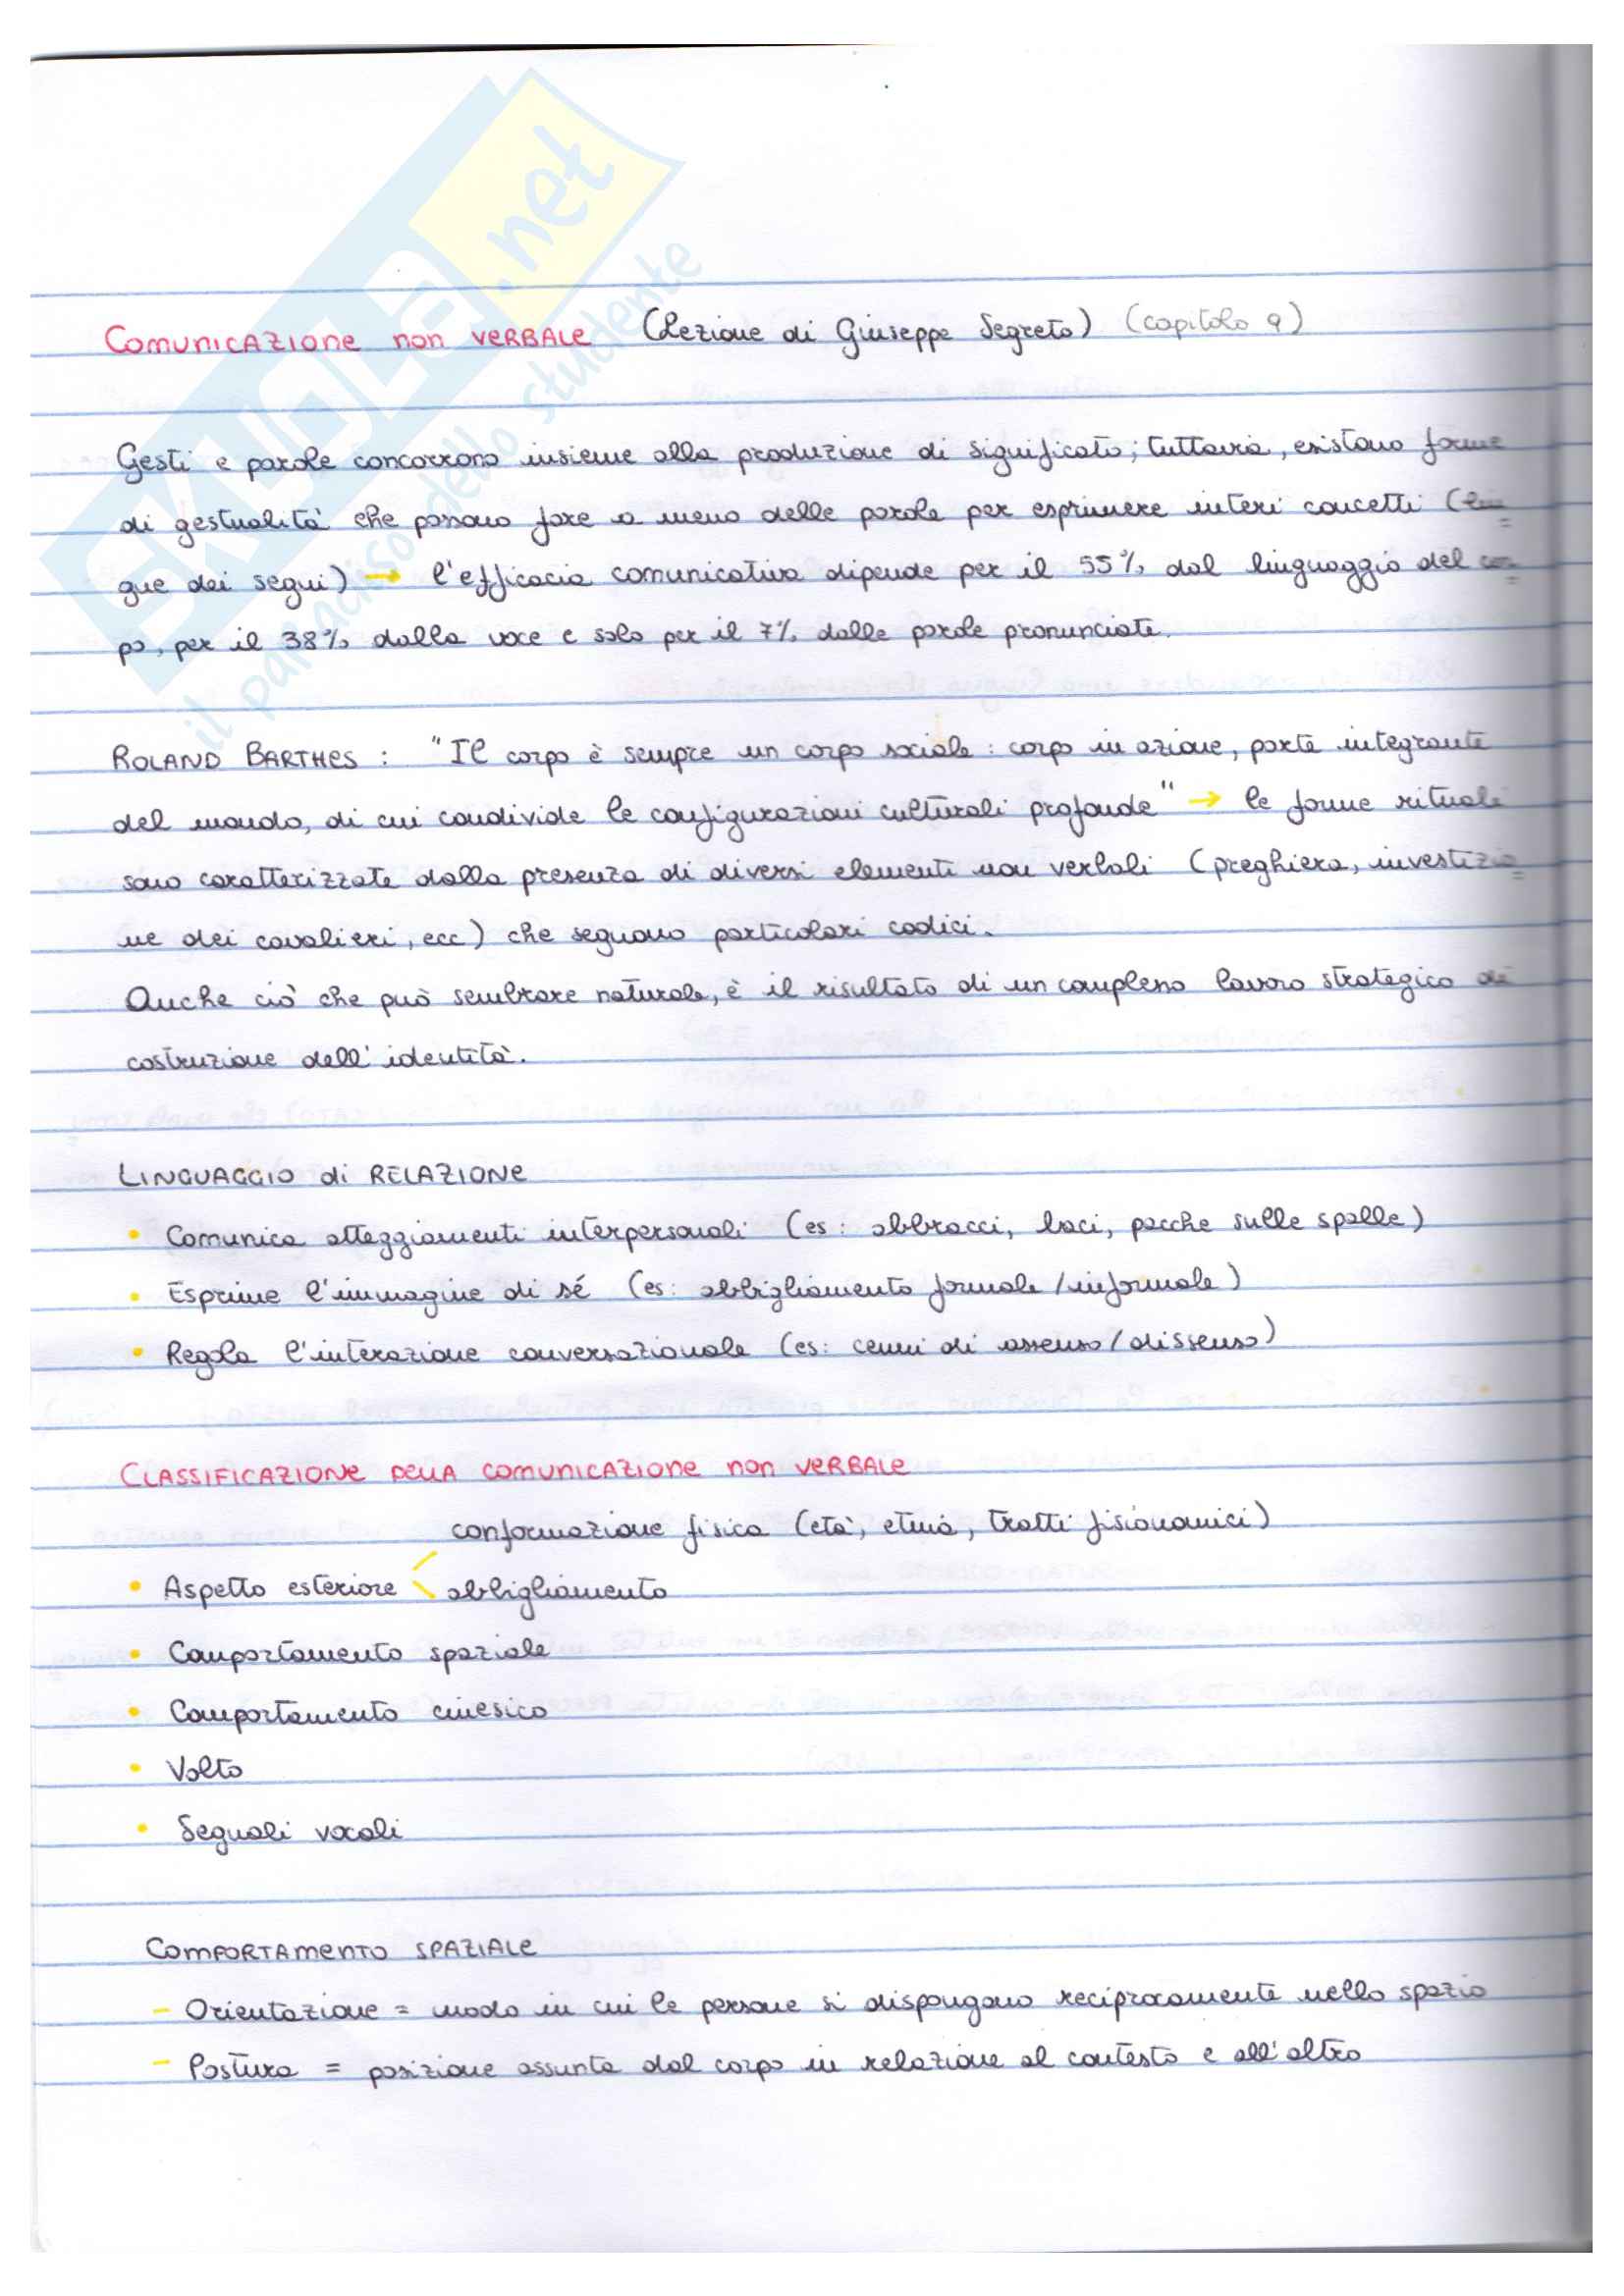 SKUOLA.net
il paradiso dello studente
COMUNICAZIONE NON VERBALE (Lezione di Giuseppe Segreto) (capitolo 9)
Gesti e parole concorrono insieme alla produzione di significato; tuttavia, esistono forme
di gestualità che possono fare a meno delle parole per esprimere interi concetti (lin=
gue dei segni) → l'efficacia comunicativa dipende per il 55% dal linguaggio del cor=
po, per il 38% dalla voce e solo per il 7% dalle parole pronunciate.
ROLAND BARTHES : "Il corpo è sempre un corpo sociale : corpo in azione, parte integrante
del mondo, di cui condivide le configurazioni culturali profonde" → le forme rituali
sono caratterizzate dalla presenza di diversi elementi non verbali (preghiera, investizio=
ne dei cavalieri, ecc) che seguono particolari codici.
Anche ciò che può sembrare naturale, è il risultato di un complesso lavoro strategico di
costruzione dell'identità.
LINGUAGGIO di RELAZIONE
• Comunica atteggiamenti interpersonali (es: abbracci, baci, pacche sulle spalle)
• Esprime l'immagine di sé (es: abbigliamento formale/informale)
• Regola l'interazione conversazionale (es: cenni di assenso/dissenso)
CLASSIFICAZIONE DELLA COMUNICAZIONE NON VERBALE
conformazione fisica (età, etnia, tratti fisionomici)
• Aspetto esteriore abbigliamento
• Comportamento spaziale
• Comportamento cinesico
• Volto
• Segnali vocali
COMPORTAMENTO SPAZIALE
– Orientazione = modo in cui le persone si dispongono reciprocamente nello spazio
– Postura = posizione assunta dal corpo in relazione al contesto e all'altro